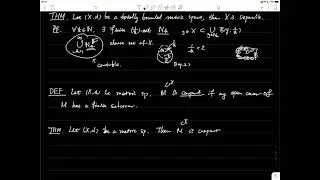 THM. Let (X,d) be a totally bounded metric space, then X is separable.
Pf. ∀k∈ℕ, ∃ finite (1/k)-net N_k, X ⊂ ∪_{y∈N_k} B(y, 1/k)
∪_{k=1}^∞ N_k dense in X.
countable.
DEF. Let (X,d) be metric sp. M ⊂ X is compact if any open cover of
M has a finite subcover.
THM. Let (X,d) be a metric sp. Then M ⊂ X is compact